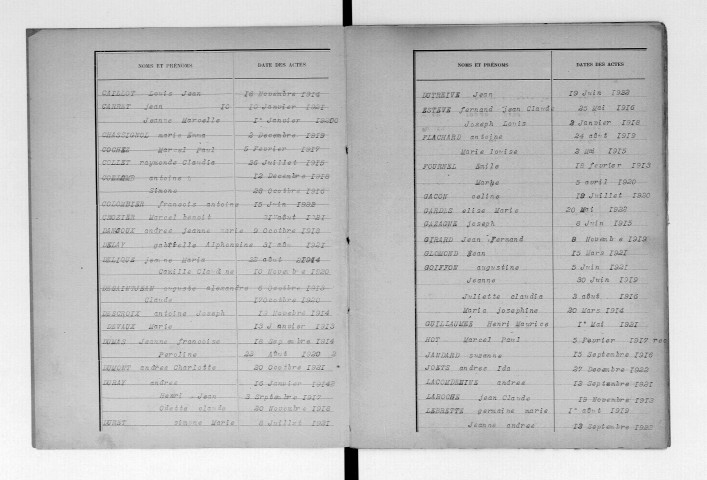 NOMS ET PRÉNOMS DATE DES ACTES
Louis Jean 18 Novembre 1914
jean 10 Janvier
Jeanne Marcelle 1° Janvier
CHASTIGNOL marie Emma 2 Decembre 1912
Marcel Paul 5 Fevrier 1917
COLLET raymonde Claudia 26 Juillet 1915
antoine 12 Decembre 1918
Simone 28 Octobre 1916
COLOMBIER francois antoine 15 Juin
CROZIER Marcel benoit août 1921
andree jeanne marie 9 Octobre 1915
DELAY gabrielle Alphonsine août 1921
jeanne Marie août 1914
Camille Claudine 10 Novembre 1920
auguste alexandre 6 Octobre 1913
Claude Octobre 1920
DECROIX antoine joseph Novembre 1914
DEVAUX Marie 13 Janvier 1913
DUMAS Jeanne francoise 16 Septembre 1914
Peroline 22 août 1920
DUMONT andree Charlotte 20 Octobre 1921
andree 14 Janvier
Henri Jean 3 Septembre 1917
Odette claude 30 Novembre 1916
simone Marie Juillet 1921
NOMS ET PRÉNOMS DATES DES ACTES
DUTREIVE Jean 19 Juin 1922
ESTEVE fernand jean Claude 25 Mai 1916
Joseph Louis 2 Janvier 1918
FLACHARD antoine 24 août 1919
Marie louise 2 Mai 1913
FOURNEL Emile 16 fevrier 1913
Marthe 5 avril 1920
GACON celine 19 Juillet 1920
elise Marie 20 Mai 1922
GARAGNE joseph 6 Juin 1915
GIRARD Jean Fernand 8 Novembre 1919
GLOMOND Jean 15 Mars 1921
GOIFFON augustine 5 Juin 1921
Jeanne 30 Juin 1919
Juliette claudia 3 août 1916
Marie josephine 30 Mars 1914
GUILLAUMME Henri Maurice 1° Mai 1921
HOT Marcel Paul 5 Fevrier 1917 rec
JANDARD suzanne 15 Septembre 1916
JOETS andree Ida 27 Decembre 1922
andree 12 Septembre 1921
LAROCHE jean Claude 18 Novembre 1912
LEBRETTE germaine marie 1° août 1919
Jeanne andree 13 Septembre 1922